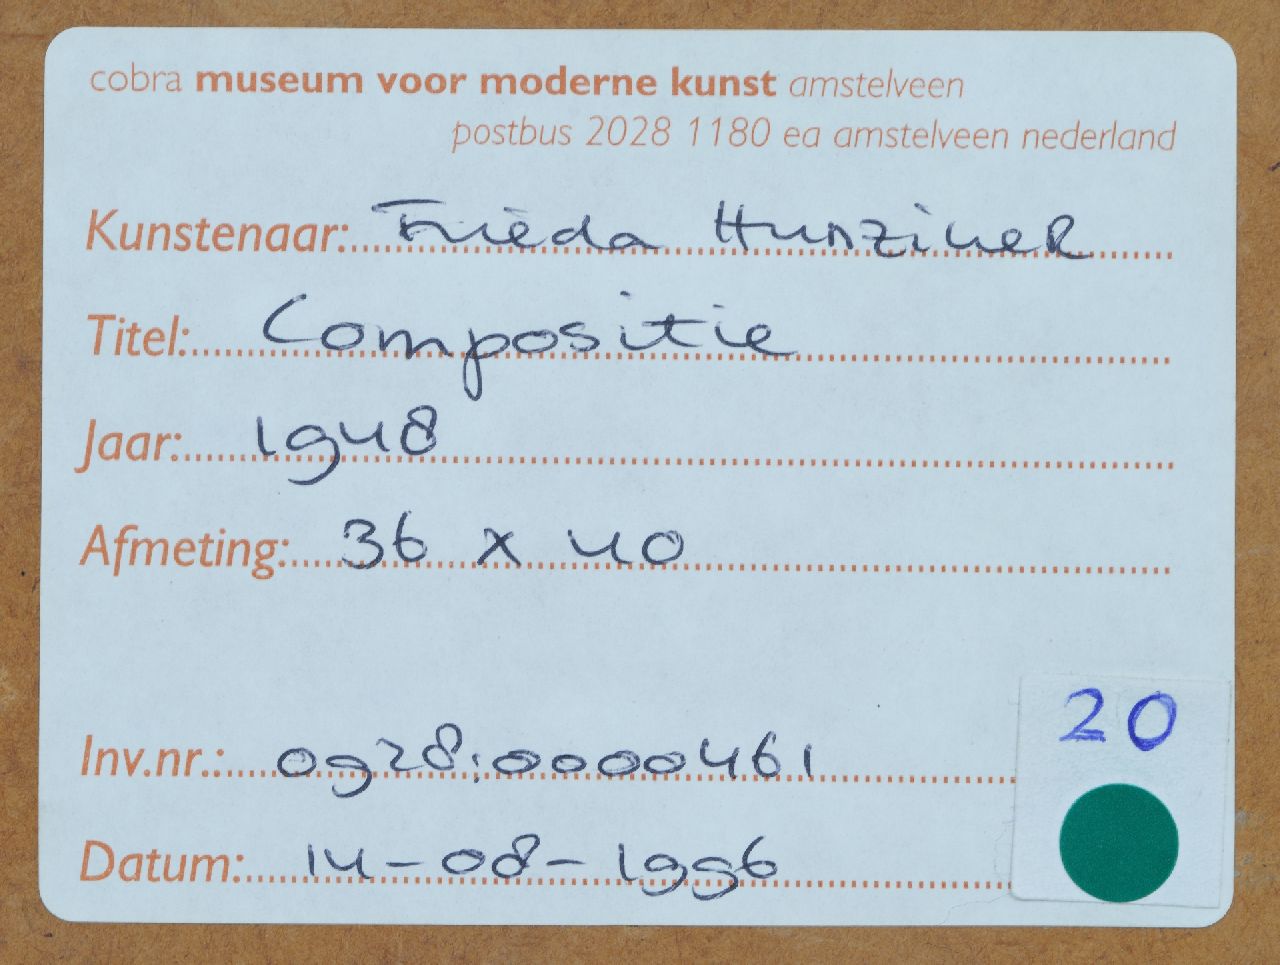 cobra museum voor moderne kunst amstelveen
postbus 2028 1180 ea amstelveen nederland
Kunstenaar: Frieda Hunziker
Titel: Compositie
Jaar: 1948
Afmeting: 36 x 40
Inv.nr.: 0928:0000461
Datum: 14-08-1996
20